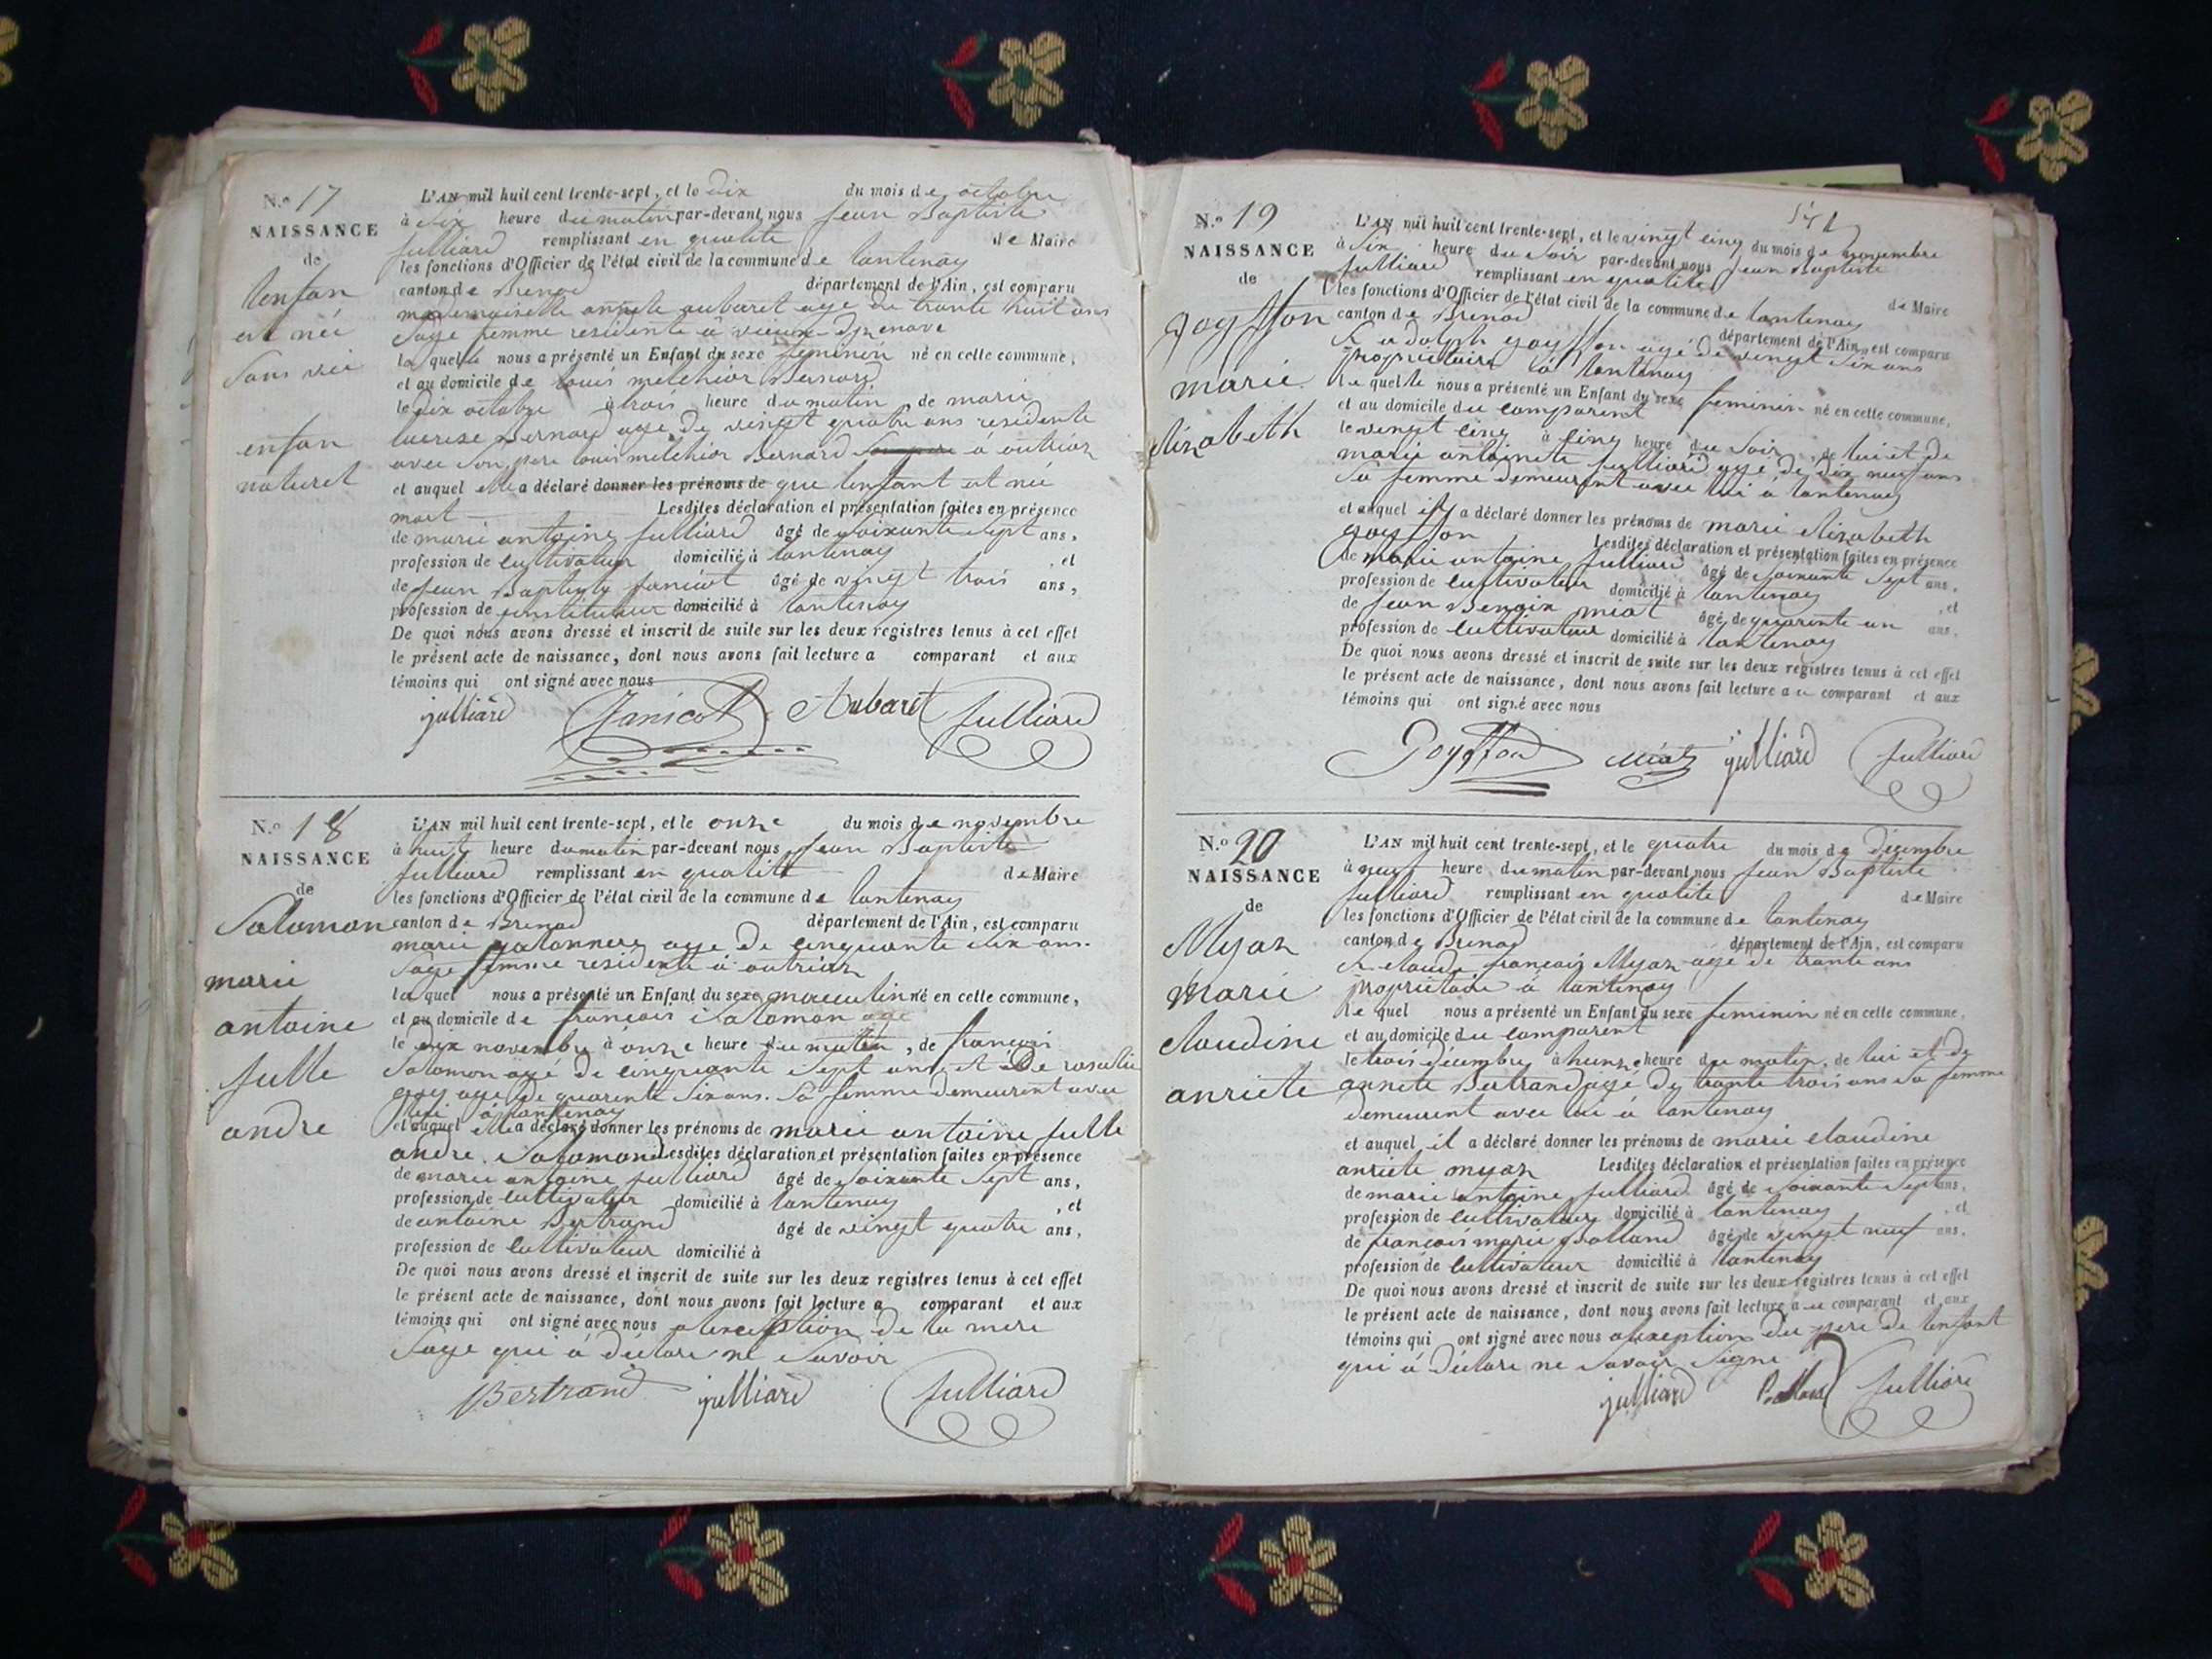 N.o 17
NAISSANCE
de
lenfan
est née
Sans vie
enfan
naturel
L'AN mil huit cent trente-sept, et le dix du mois de octobre
à Six heure du matin par-devant nous Jean Baptiste
Julliard remplissant en qualité de Maire
les fonctions d'Officier de l'état civil de la commune de lantenay
canton de Brenod département de l'Ain, est comparu
mademoiselle annete aubaret age de trante huit ans
Sage femme residente à vieux dizenave
la quelle nous a présenté un Enfant du sexe feminin né en cette commune,
et au domicile de louis melchior Bernard
le dix octobre à trois heure du matin, de marie
lucrese Bernard age de vingt quatre ans residente
avec Son pere louis melchior Bernard à outriaz
et auquel elle a déclaré donner les prénoms de que lenfant est née
mort Lesdites déclaration et présentation faites en présence
de marie antoine Julliard âgé de Soixante Sept ans,
profession de cultivateur domicilié à lantenay, et
de Jean Baptiste Janicot âgé de vingt trois ans,
profession de instituteur domicilié à lantenay
De quoi nous avons dressé et inscrit de suite sur les deux registres tenus à cet effet
le présent acte de naissance, dont nous avons fait lecture a comparant et aux
témoins qui ont signé avec nous
julliard Janicot Aubaret Julliard
N.o 18
NAISSANCE
de
Salomon
marie
antoine
Julle
andre
L'AN mil huit cent trente-sept, et le onze du mois de novembre
à huit heure du matin par-devant nous Jean Baptiste
Julliard remplissant en qualité de Maire
les fonctions d'Officier de l'état civil de la commune de lantenay
canton de Brenod département de l'Ain, est comparu
marie age de cinquante Six ans
Sage femme residente à outriaz
la quel nous a présenté un Enfant du sexe masculin né en cette commune,
et au domicile de françois Salomon age
le dix novembre à onze heure du matin, de françois
Salomon age de cinquante Sept ans et De rosalie
goy age de quarente Six ans. Sa femme demeurent avec
lui à lantenay
et auquel elle a déclaré donner les prénoms de marie antoine Julle
andre Salomon Lesdites déclaration et présentation faites en présence
de marie antoine Julliard âgé de Soixante Sept ans,
profession de cultivateur domicilié à lantenay, et
de antoine Bertrand âgé de vingt quatre ans,
profession de cultivateur domicilié à
De quoi nous avons dressé et inscrit de suite sur les deux registres tenus à cet effet
le présent acte de naissance, dont nous avons fait lecture a comparant et aux
témoins qui ont signé avec nous alexception de la mere
Sage qui à déclare ne Savoir
Bertrand julliard Julliard
N.o 19
NAISSANCE
de
goyffon
marie
elizabeth
L'AN mil huit cent trente-sept, et le vingt cinq du mois de novembre
à Six heure du Soir par-devant nous Jean Baptiste
Julliard remplissant en qualité de Maire
les fonctions d'Officier de l'état civil de la commune de lantenay
canton de Brenod département de l'Ain, est comparu
S. adolph goyffon agé de vingt Six ans
propriétaire à lantenay
le quelle nous a présenté un Enfant du sexe feminin né en cette commune,
et au domicile du comparent
le vingt cinq à cinq heure du Soir, de lui et de
marie antoinete Julliard age de dix neuf ans
Sa femme demeurent avec lui à lantenay
et auquel il a déclaré donner les prénoms de marie elizabeth
goyffon Lesdites déclaration et présentation faites en présence
de marie antoine Julliard âgé de Soixante Sept ans,
profession de cultivateur domicilié à lantenay, et
de Jean Benoix miat âgé de quarente un ans,
profession de cultivateur domicilié à lantenay
De quoi nous avons dressé et inscrit de suite sur les deux registres tenus à cet effet
le présent acte de naissance, dont nous avons fait lecture a u comparant et aux
témoins qui ont signé avec nous
Goyffon miat julliard Julliard
N.o 20
NAISSANCE
de
Myaz
Marie
claudine
anriete
L'AN mil huit cent trente-sept, et le quatre du mois de decembre
à neuf heure du matin par-devant nous Jean Baptiste
Julliard remplissant en qualité de Maire
les fonctions d'Officier de l'état civil de la commune de lantenay
canton de Brenod département de l'Ain, est comparu
S. claude françois Myaz age de trante ans
propriétaire à lantenay
le quel nous a présenté un Enfant du sexe feminin né en cette commune,
et au domicile du comparent
le trois décembre à heure du matin, de lui et de
annete Bertrand age de trante trois ans Sa femme
demeurent avec lui à lantenay
et auquel il a déclaré donner les prénoms de marie claudine
anriete myaz Lesdites déclaration et présentation faites en présence
de marie antoine Julliard âgé de Soixante Sept ans,
profession de cultivateur domicilié à lantenay, et
de françois marie Balland âgé de vingt neuf ans,
profession de cultivateur domicilié à lantenay
De quoi nous avons dressé et inscrit de suite sur les deux registres tenus à cet effet
le présent acte de naissance, dont nous avons fait lecture a u comparant et aux
témoins qui ont signé avec nous alexeption du pere de lenfant
qui à déclare ne Savoir Signe
julliard Balland Julliard